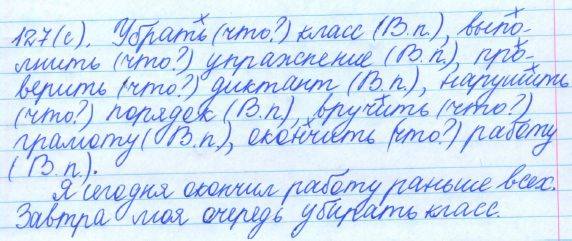 127(с). Убрать (что?) класс (В.п.), выпо-
лнить (что?) упражнение (В.п.), про-
верить (что?) диктант (В.п.), нарушить
(что?) порядок (В.п.), вручить (что?)
грамоту (В.п.), окончить (что?) работу
(В.п.).
Я сегодня окончил работу раньше всех.
Завтра моя очередь убирать класс.